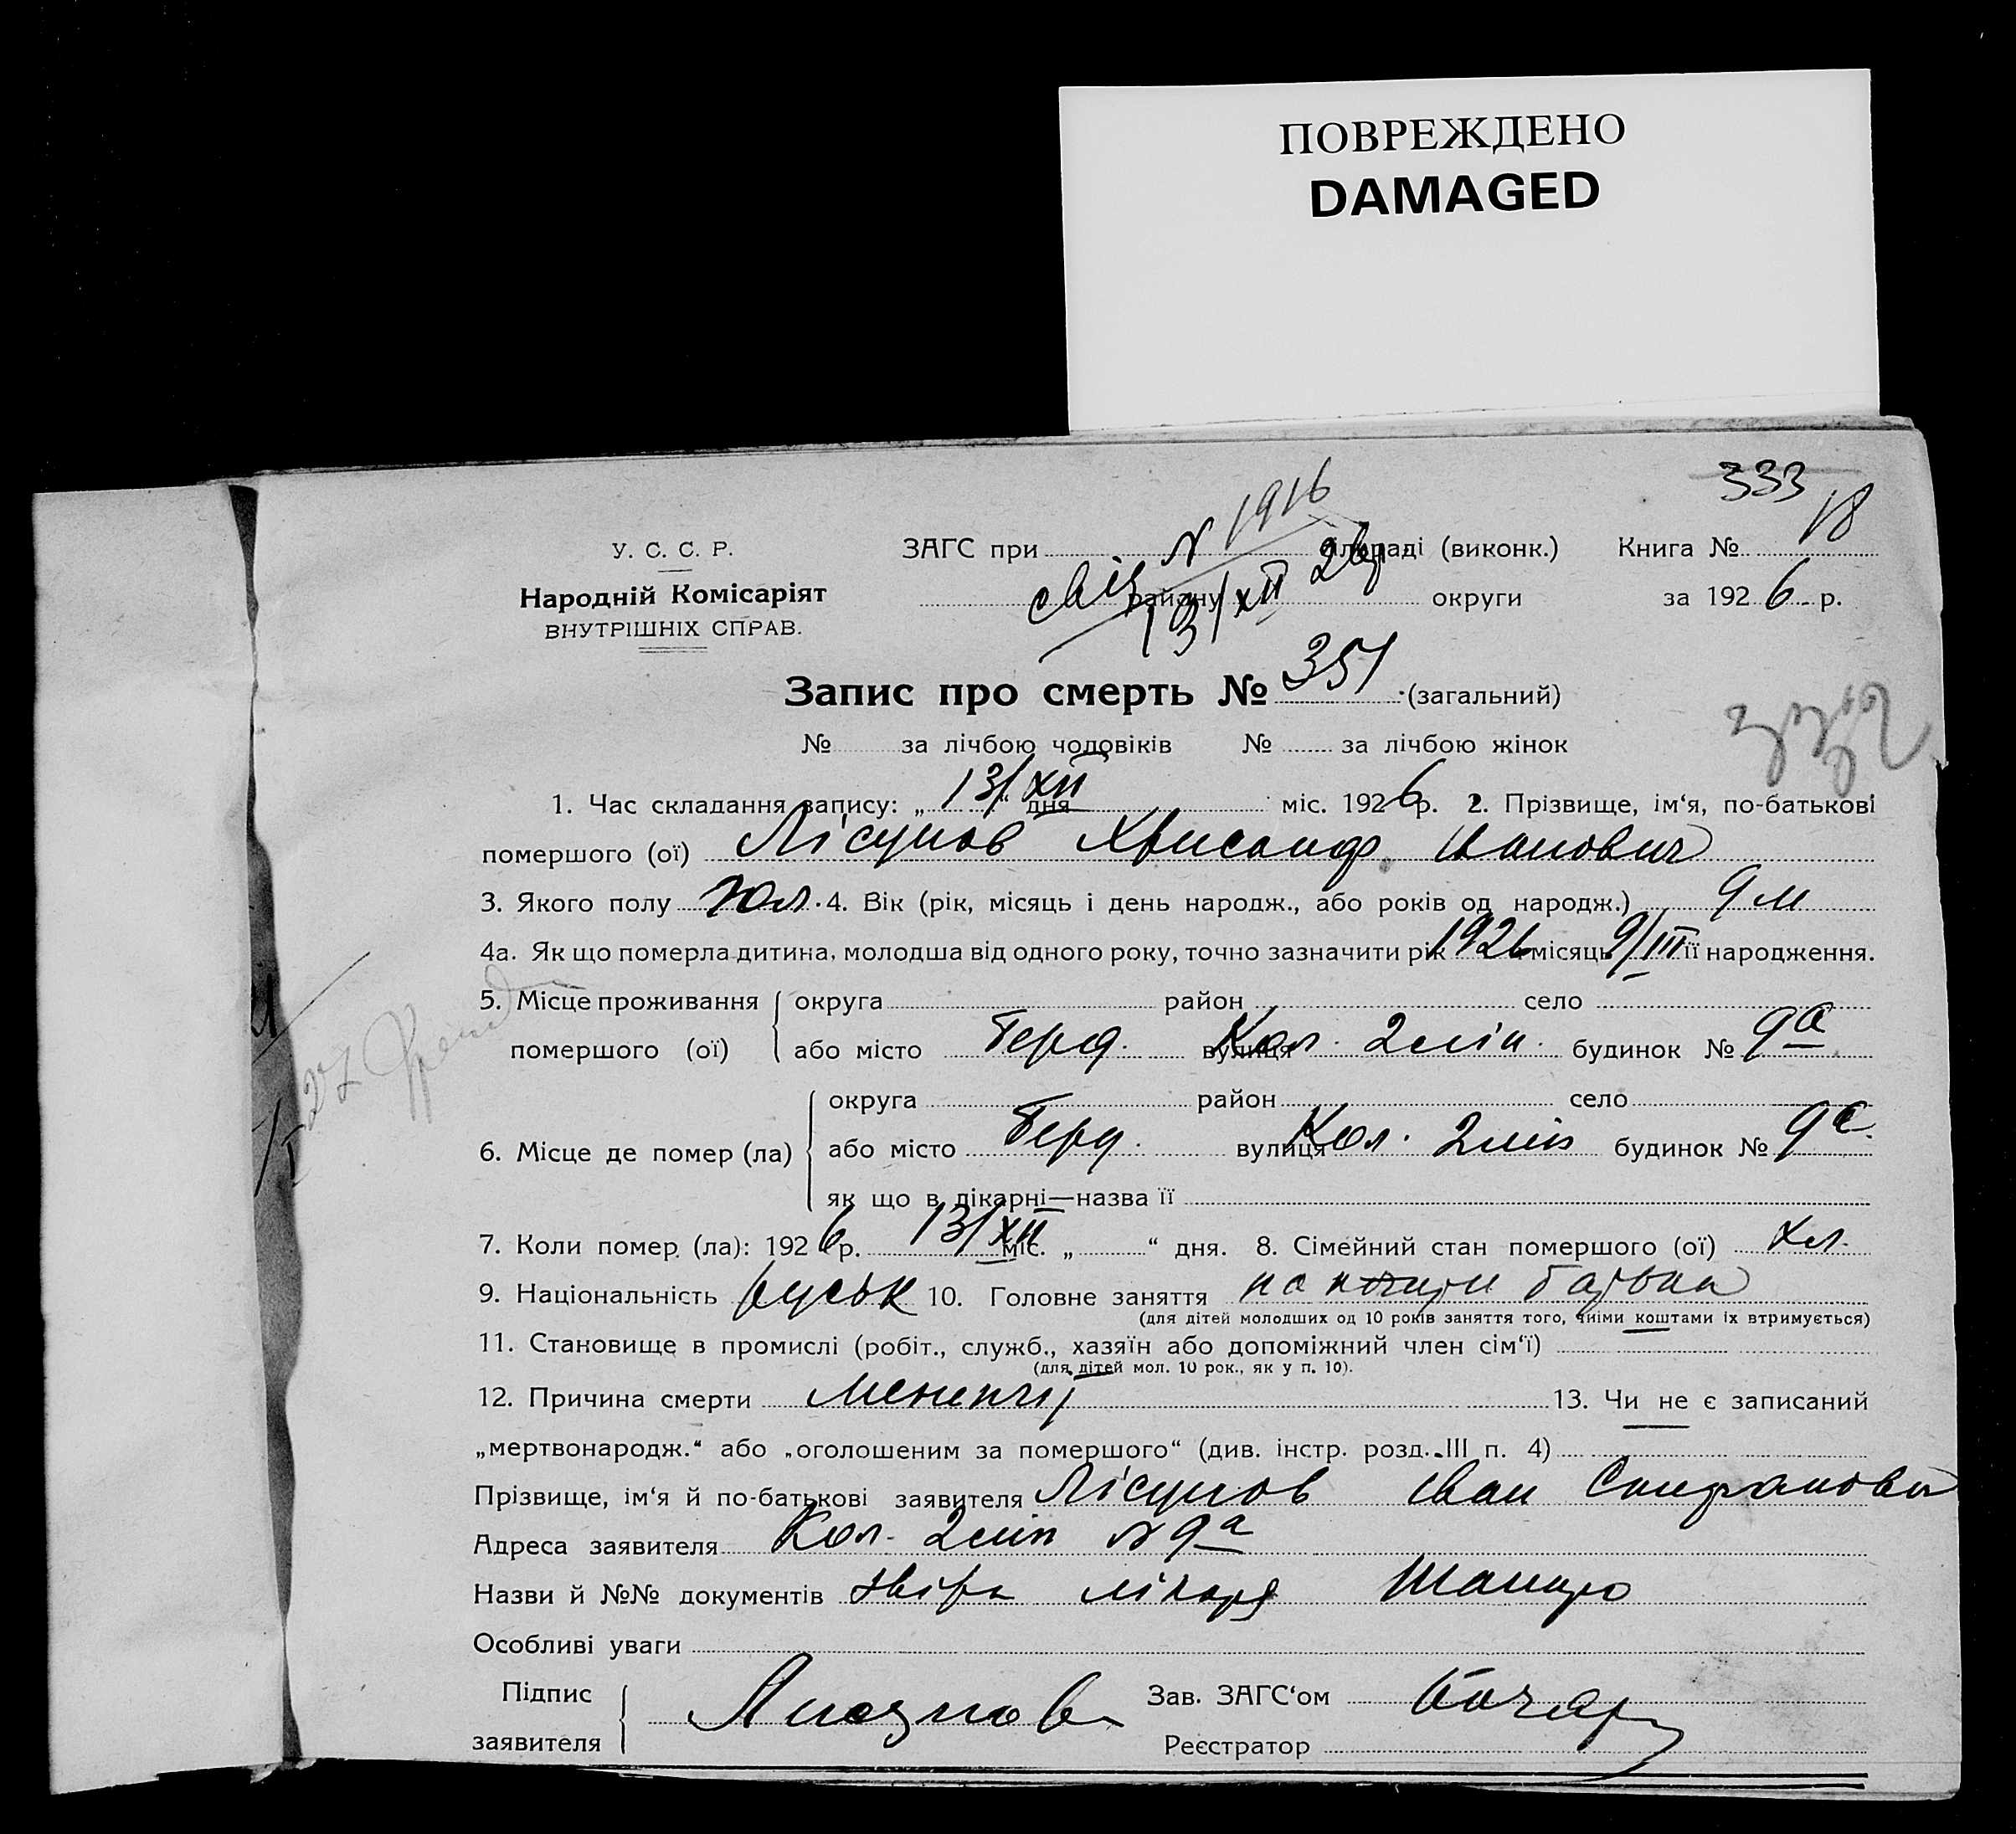 ПОВРЕЖДЕНО
DAMAGED
333
У. С. С. Р. ЗАГС при № 1916 (виконк.) Книга № 18
Народній Комісаріят району 13/XII округи за 1926 р.
ВНУТРІШНІХ СПРАВ.
Запис про смерть № 351 (загальний)
№ за лічбою чоловіків № за лічбою жінок
1. Час складання запису: „13/XII“ дня міс. 1926 р. 2. Прізвище, ім‘я, по-батькові
помершого (ої) Лісунов Хрисанф Іванович
3. Якого полу чол. 4. Вік (рік, місяць і день народж., або років од народж.) 9 м
4а. Як що померла дитина, молодша від одного року, точно зазначити рік 1926 місяць 9/III її народження.
5. Місце проживання округа район село
помершого (ої) або місто Берд. вулиця Кол. 2 лін. будинок № 9а
округа район село
6. Місце де помер (ла) або місто Берд. вулиця Кол. 2 лін будинок № 9а
як що в лікарні—назва її
7. Коли помер (ла): 1926 р. 13/XII міс. „ “ дня. 8. Сімейний стан помершого (ої) хл.
9. Національність руськ 10. Головне заняття батька
(для дітей молодших од 10 років заняття того, чиїми коштами їх втримується)
11. Становище в промислі (робіт., служб., хазяїн або допоміжний член сім‘ї)
(для дітей мол. 10 рок., як у п. 10).
12. Причина смерти Менингіт 13. Чи не є записаний
„мертвонародж.“ або „оголошеним за помершого“ (див. інстр. розд. III п. 4)
Прізвище, ім‘я й по-батькові заявителя Лісунов Іван
Адреса заявителя Кол. 2 лін № 9а
Назви й №№ документів лікаря
Особливі уваги
Підпис Зав. ЗАГС‘ом
заявителя Реєстратор